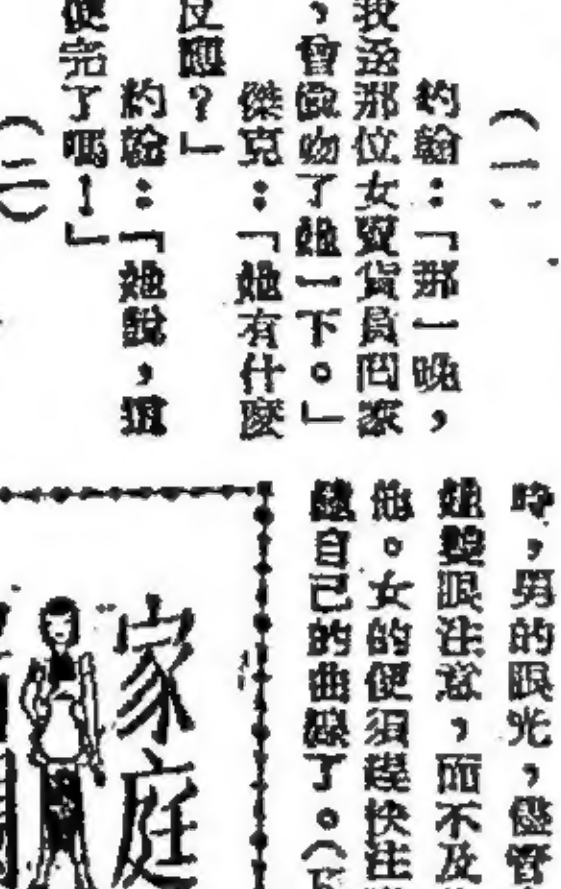 （一）
約翰：「那一晚，
我送那位女售貨員回家
，曾偷吻了她一下。」
傑克：「她有什麼
反應？」
約翰：「她說，這
便完了嗎！」
（二）
時，男的眼光，儘管
她雙眼注意，而不及
他。女的便須趕快注
自己的曲線了。（
家庭